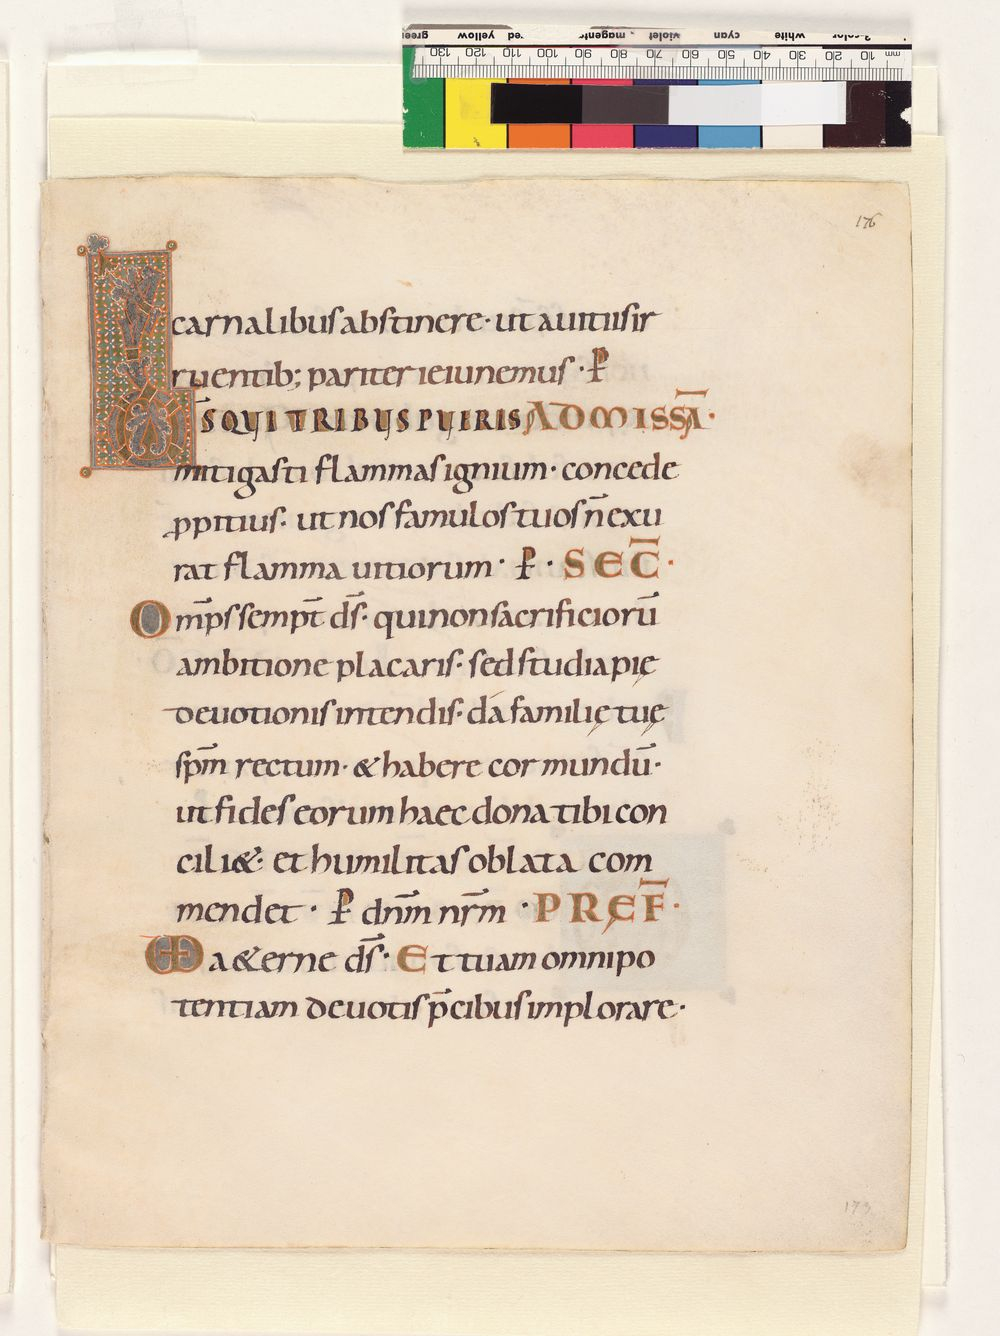 green yellow red magenta violet cyan white 3-color
130 120 110 100 90 80 70 60 50 40 30 20 10 mm
176
carnalibuſ abſtinere· ut a uitiiſ ir
ruentib; pariter ieiunemuſ· P̄
D̄S QUI TRIBUS PUERIS AD MISSĀ·
mitigaſti flammaſ ignium· concede
ꝓpitiuſ· ut noſ famuloſ tuoſ n̄ exu
rat flamma uitiorum· P̄· SEC̄·
Om̄pſ sempt̄ dſ̄· qui non ſacrificiorū
ambitione placariſ· ſed ſtudia pię
deuotioniſ intendiſ· da familię tuę
ſpm̄ rectum· & habere cor mundū·
ut fideſ eorum haec dona tibi con
cili&· et humilitaſ oblata com
mendet· P̄ dnm̄ nr̄m· PREF̄·
UD a&erne dſ̄· Et tuam omnipo
tentiam deuotiſ p̄cibuſ implorare·
173